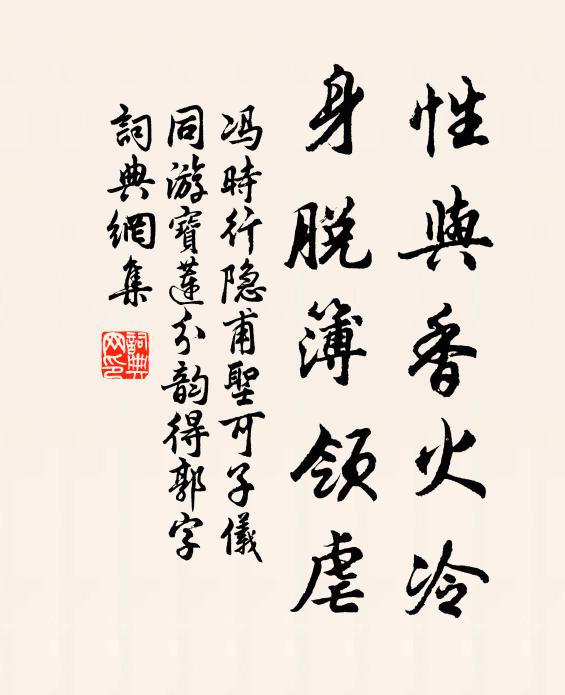 性與香火冷
身脫簿領虐
冯時行隐甫聖可子儀
同游寶蓮分韵得郭字
詞典網集
詞典网印